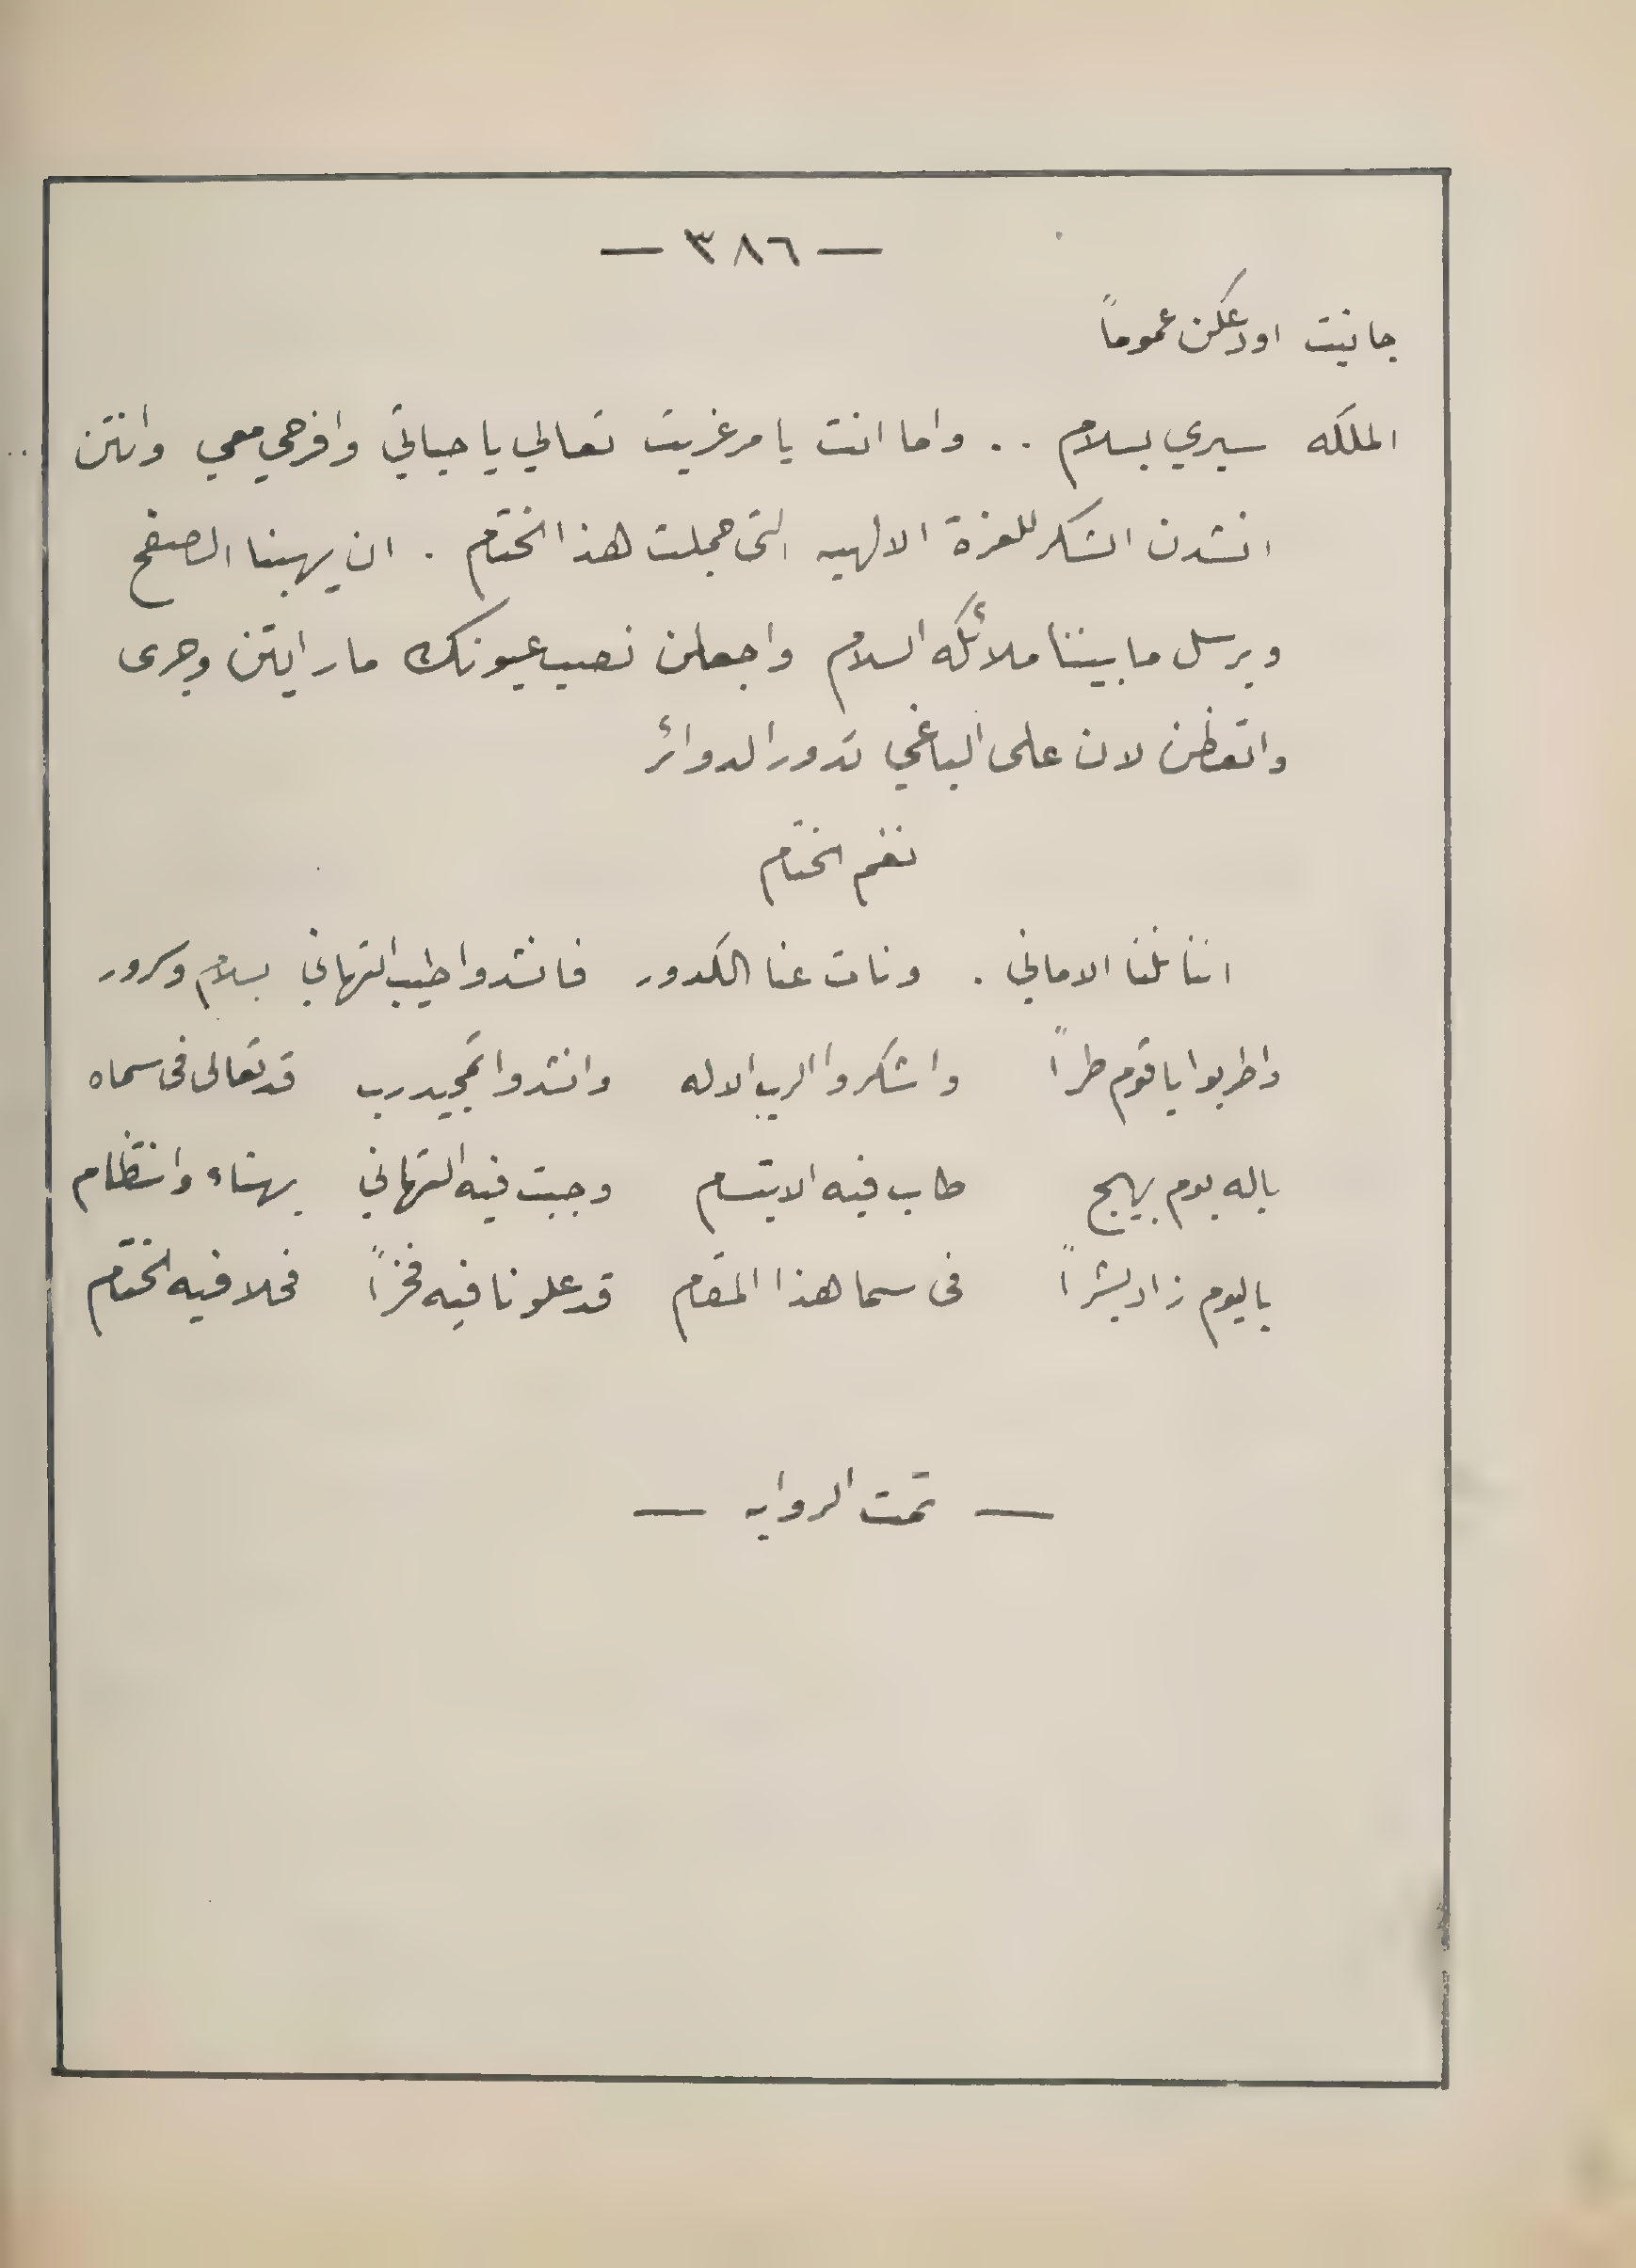 — ٣٨٦ —
جانيت اودعكن عموماً
الملكه سيري بسلام . . واما انت يا مرغريت تعالي يا حياتي وافرحي معي وانتن . .
انشدن الشكر للعزة الالهيه التي جملت هذا الختام . ان يهبنا الصفح
ويرسل ما بيننا ملائكه السلام واجعلن نصب عيونكن ما رايتن وجرى
واتعظن لان على الباغي تدور الدوائر
نغم الختام
اننا نلنا الاماني . ونات عنا الكدور فانشدوا طيب التهاني بسلام وكرور
واطربوا يا قوم طراً واشكروا الرب الاله وانشدوا تمجيد رب قد تعالى في سماه
ياله يوم بهيج طاب فيه الابتسام وجبت فيه التهاني بهناء وانتظام
يا ليوم زاد بشراً في سما هذا المقام قد علونا فيه فخراً فحلا فيه الختام
— تمت الروايه —